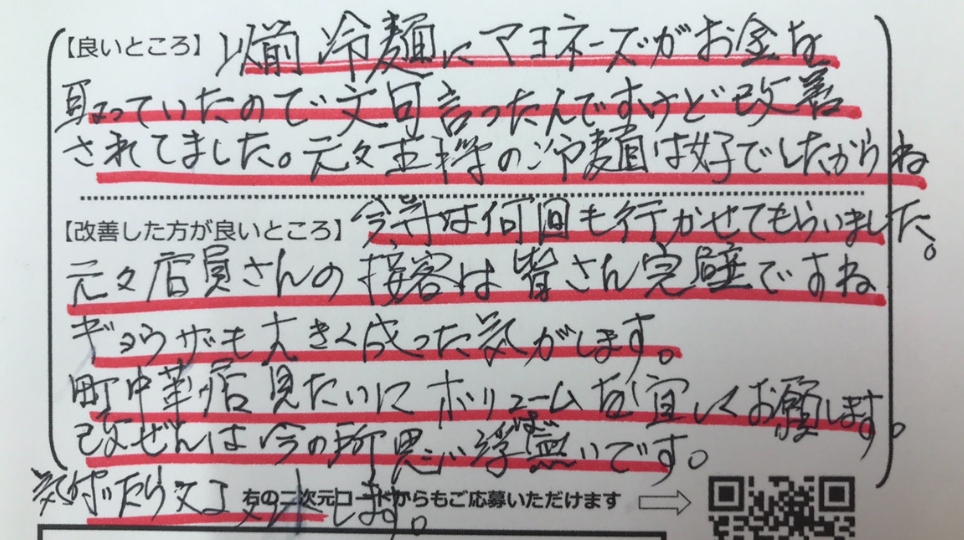 【良いところ】以前冷麺にマヨネーズがお金を
取っていたので文句言ったんですけど改善
されてました。元々王将の冷麺は好でしたからね
【改善した方が良いところ】今年は何回も行かせてもらいました。
元々店員さんの接客は皆さん完璧ですね
ギョウザも大きく成った気がします。
町中華店見たいにボリュームを宜しくお願します。
改ぜんは今の所思い浮ば無いです。
気付たら又
右の二次元コードからもご応募いただけます
します。